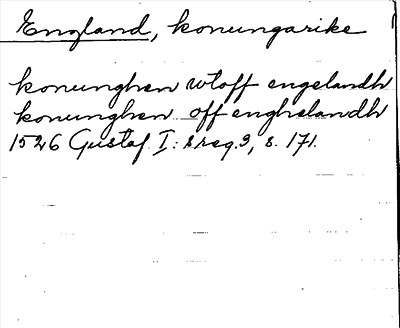 England, konungarike
konunghen utoff engelandh
konunghen off enghelandh
1526 Gustaf I: s reg. 3, s. 171.